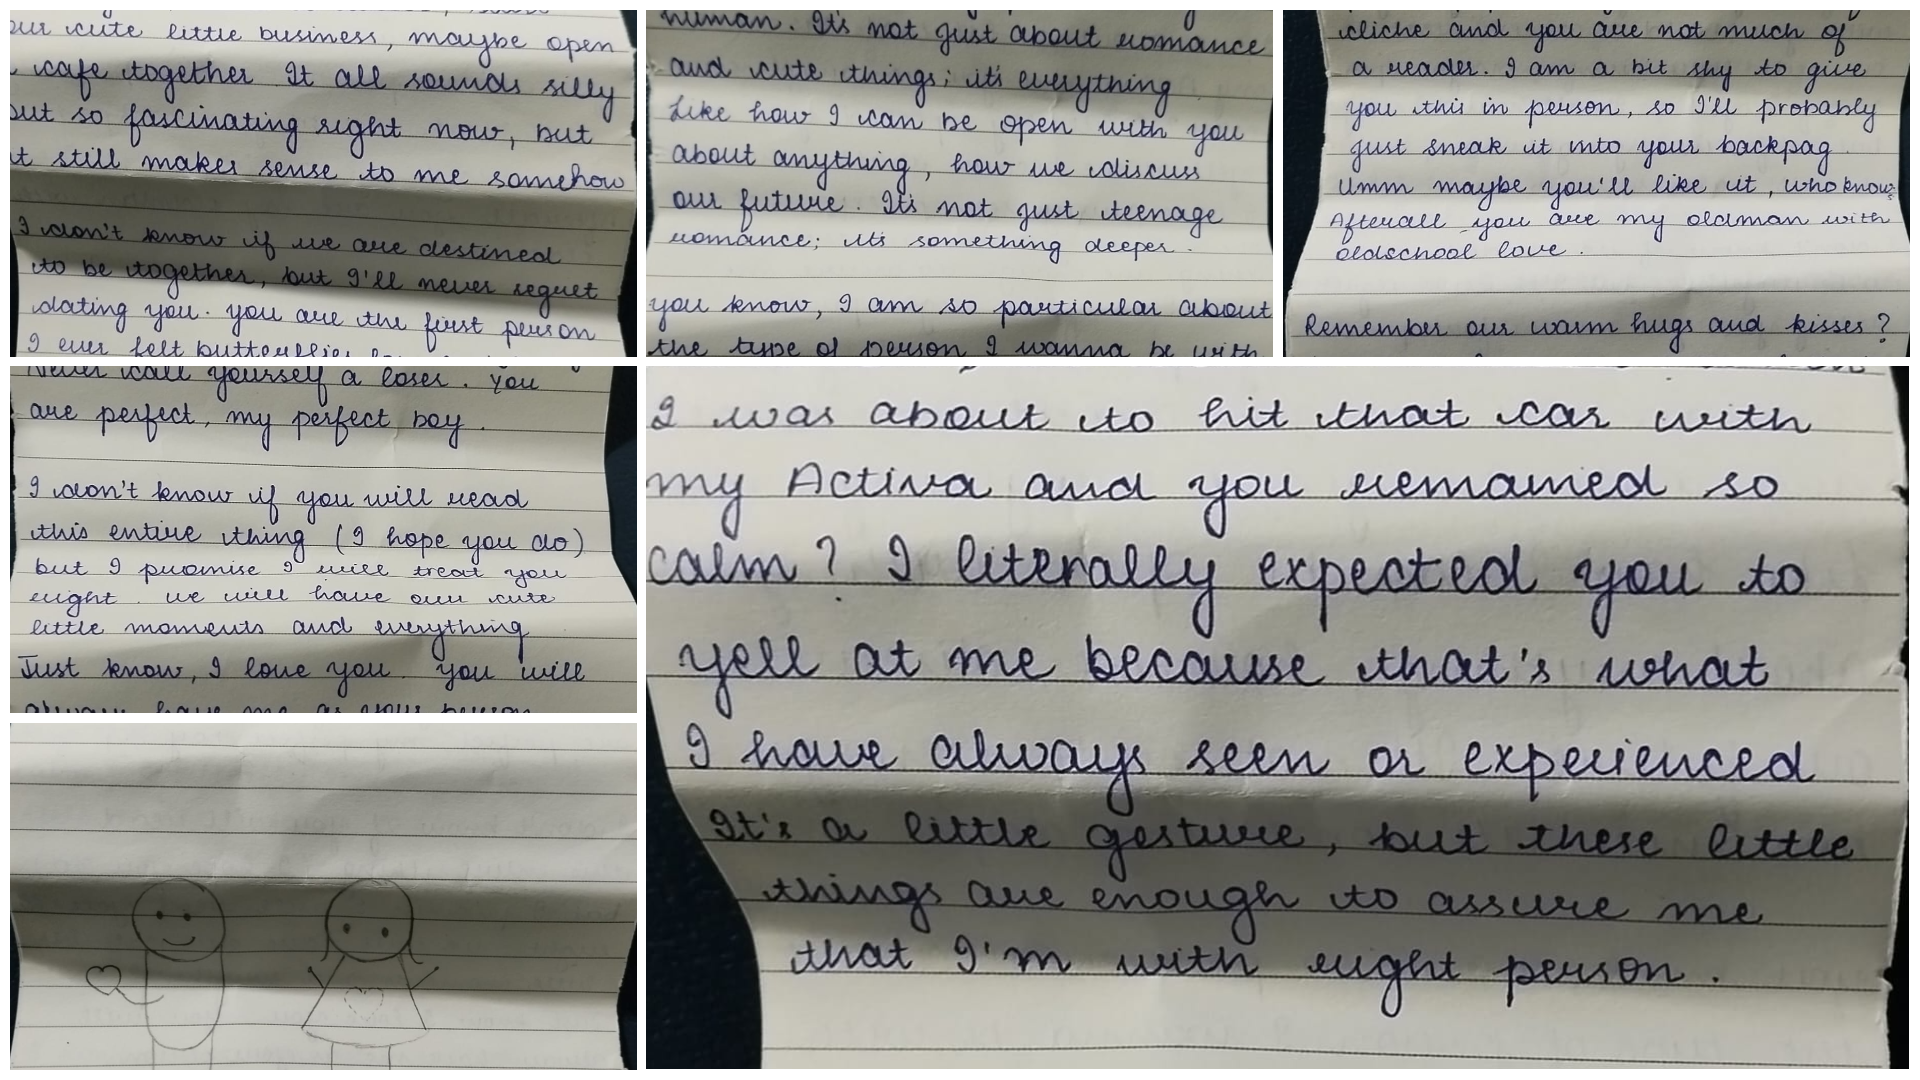 our cute little business, maybe open
cafe together It all sounds silly
but so fascinating right now, but
it still makes sense to me somehow
I don't know if we are destined
to be together, but I'll never regret
dating you. you are the first person
I ever felt butterflies
human. It's not just about romance
and cute things; it's everything
Like how I can be open with you
about anything, how we discuss
our future. It's not just teenage
romance; it's something deeper.
you know, I am so particular about
the type of person I wanna be with
cliche and you are not much of
a reader. I am a bit shy to give
you this in person, so I'll probably
just sneak it into your backpag.
Umm maybe you'll like it, who knows
Afterall you are my oldman with
oldschool love.
Remember our warm hugs and kisses?
Never call yourself a loser. You
are perfect, my perfect boy.
I don't know if you will read
this entire thing (I hope you do)
but I promise I will treat you
right. we will have our cute
little moments and everything
Just know, I love you. you will
always have me as your person
I was about to hit that car with
my Activa and you remained so
calm? I literally expected you to
yell at me because that's what
I have always seen or experienced
It's a little gesture, but these little
things are enough to assure me
that I'm with right person.